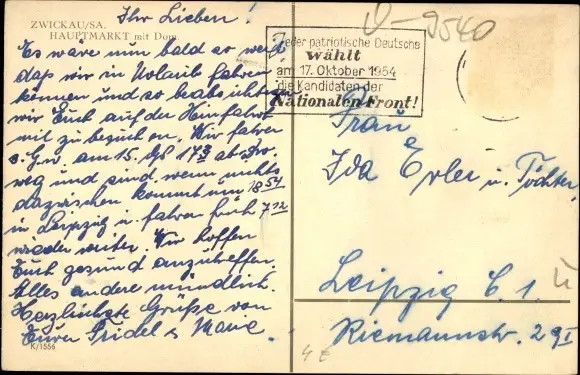 ZWICKAU/SA.
HAUPTMARKT mit Dom
Ihr Lieben!
Es wäre nun bald so weit
daß wir in Urlaub fahren
können und so beabsichtigen
wir Euch auf der Hinfahrt
mit zu besuchen. Wir fahren
am 15. ab
weg und sind wenn nichts
dazwischen kommt um 18 54
in Leipzig u. fahren früh 7 12
wieder weiter. Wir hoffen
Euch gesund anzutreffen.
Alles andere mündlich.
Herzlichste Grüße von
Euren Fridel & Marie.
K/1556
D-9540
Jeder patriotische Deutsche
wählt
am 17. Oktober 1954
die Kandidaten der
Nationalen Front!
Frau
Ida Erler u. Töchter,
Leipzig C. 1.
Riemannstr. 29 I
4 E